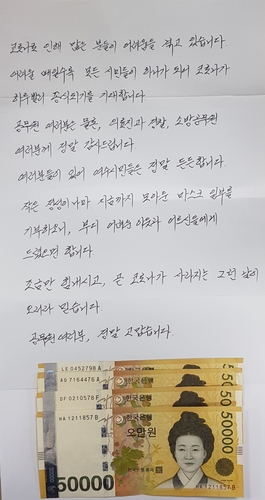 코로나로 인해 많은 분들이 어려움을 겪고 있습니다
어려울 때일수록 모든 시민들이 하나가 되어 코로나가
하루빨리 종식되기를 기대합니다.
공무원 여러분은 물론, 의료진과 경찰, 소방공무원
여러분께 정말 감사드립니다.
여러분들이 있어 여수시민들은 정말 든든합니다.
작은 정성이나마 지금까지 모아둔 마스크 일부를
기부하오니, 부디 어려운 이웃과 어르신들에게
드렸으면 합니다.
조금만 힘내시고, 곧 코로나가 사라지는 그런 날이
오리라 믿습니다
공무원 여러분, 정말 고맙습니다.
LE 0452798 A
AD 7164476 A
DF 0210578 B
HA 1211857 B
한국은행
한국은행
한국은행
오만원
50000
50000